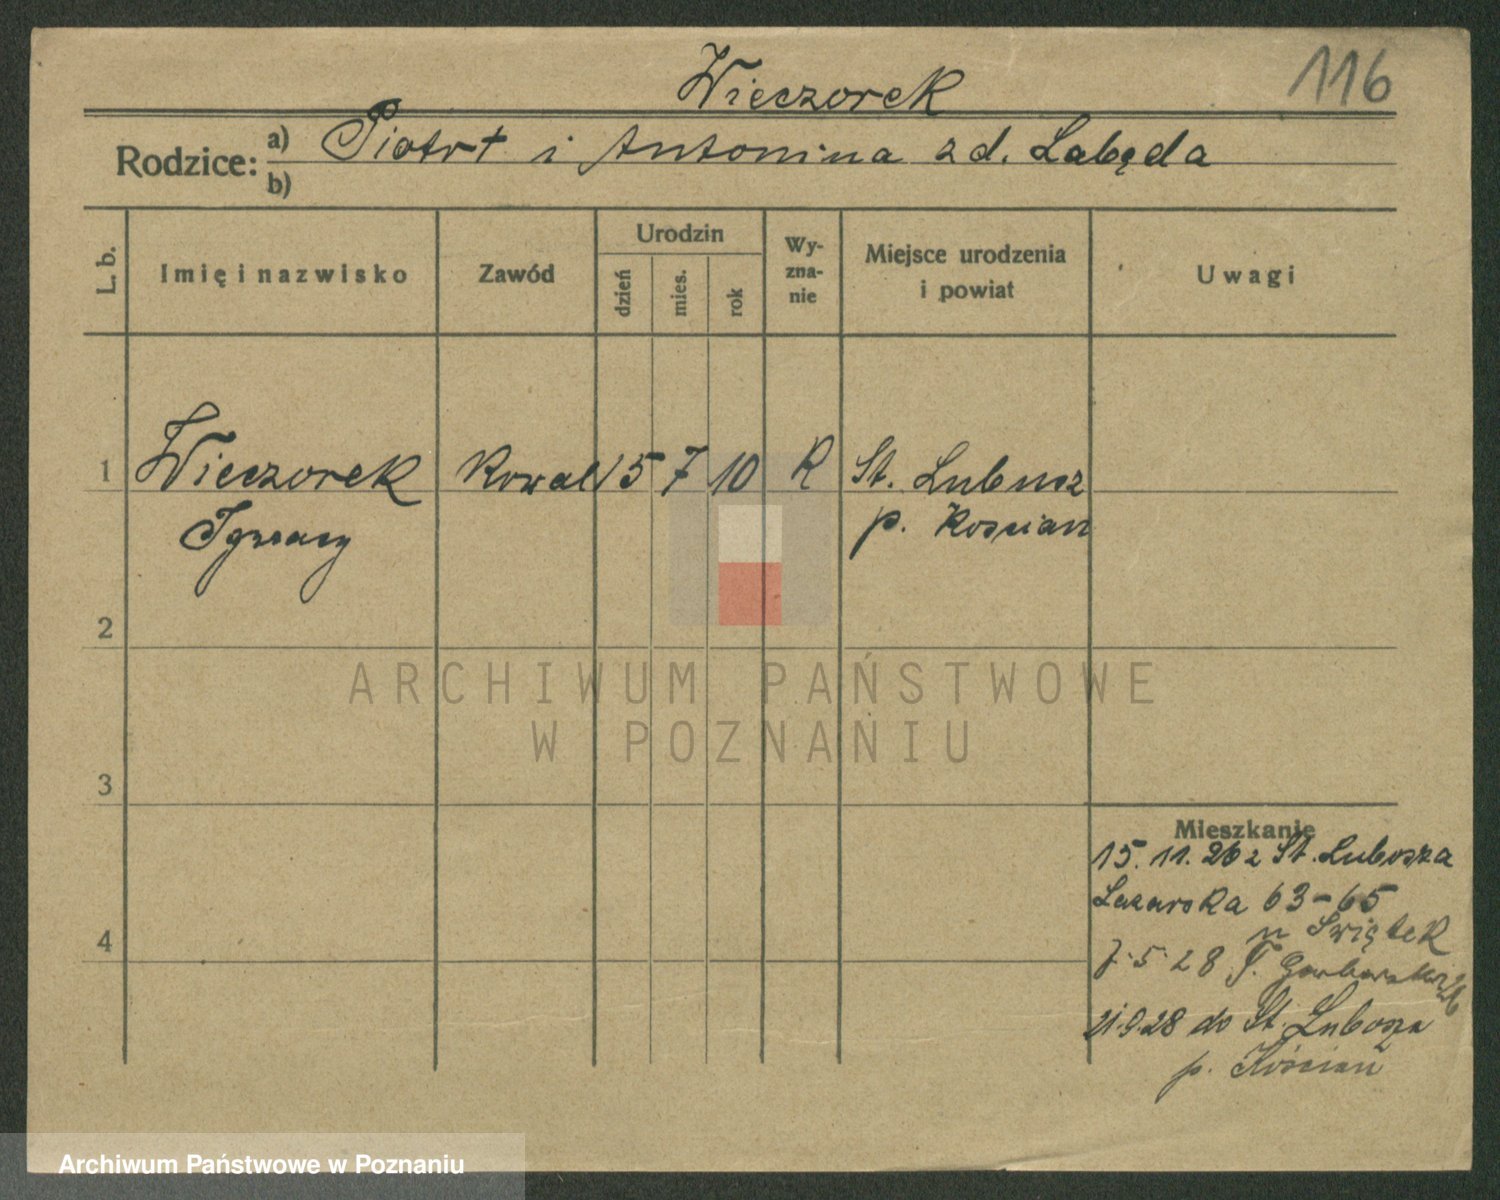 116
Wieczorek
Rodzice: a) Piotr + i Antonina z d. Łabęda
b)
L. b. Imię i nazwisko Zawód Urodzin dzień mies. rok Wy-zna-nie Miejsce urodzenia i powiat Uwagi
1 Wieczorek Kowal 15 7 10 R St. Lubosz
Ignacy p. Kościan
2
ARCHIWUM PAŃSTWOWE
W POZNANIU
3
Mieszkanie
15. 11. 26 z St. Lubosza
Łazarska 63-65
u Świątek
4
7.5.28 F. Garbarska
21.9.28 do St. Lubosza
p. Kościan
Archiwum Państwowe w Poznaniu